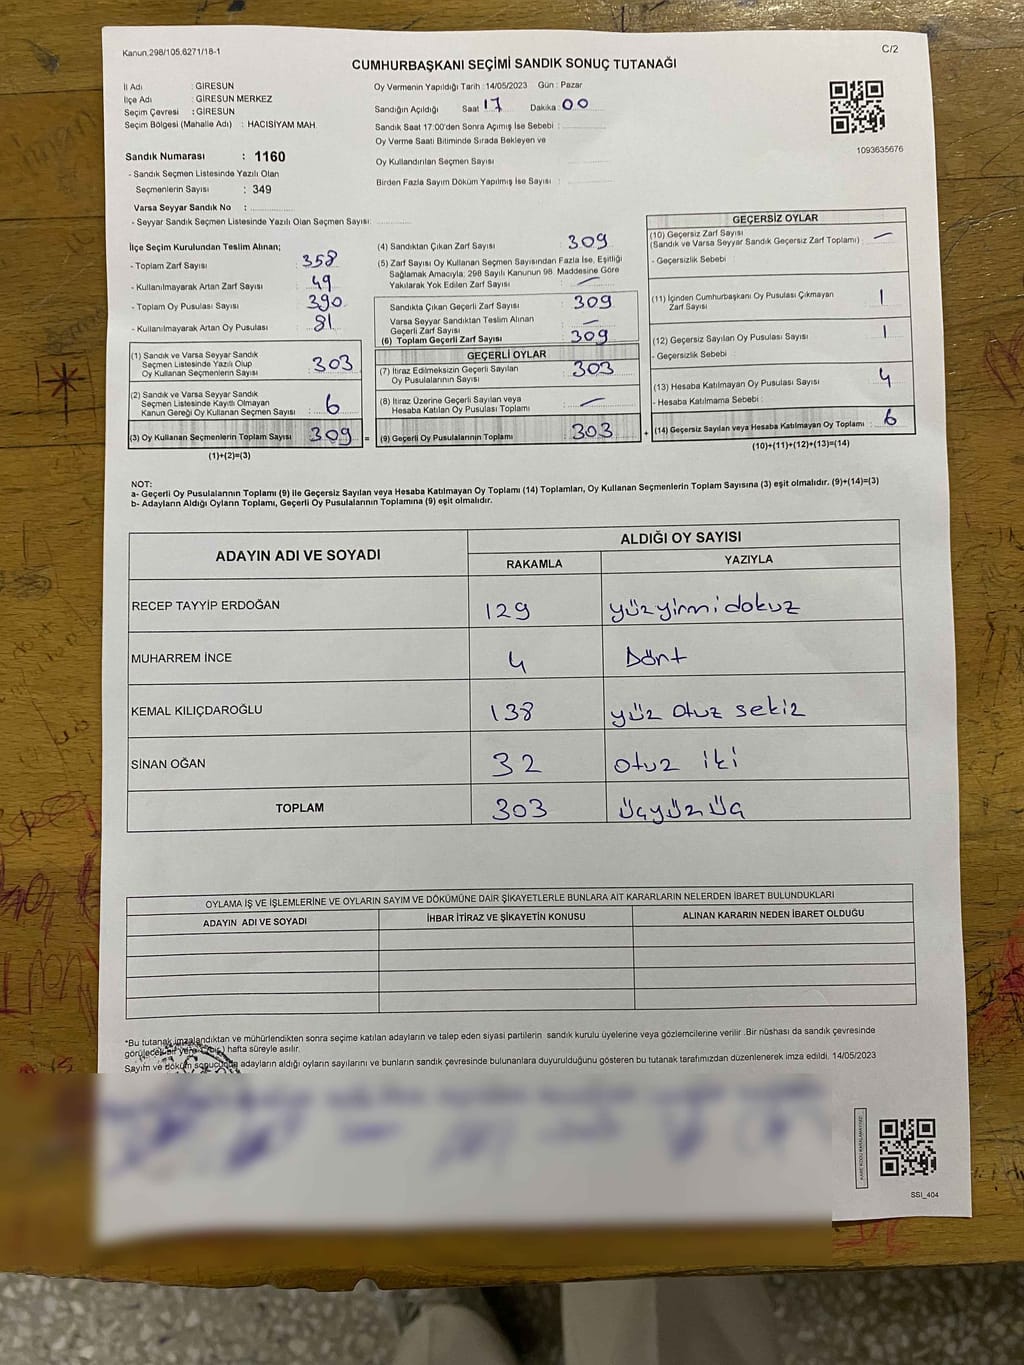 Kanun.298/105.6271/18-1
C/2
CUMHURBAŞKANI SEÇİMİ SANDIK SONUÇ TUTANAĞI
İl Adı : GİRESUN
İlçe Adı : GİRESUN MERKEZ
Seçim Çevresi : GİRESUN
Seçim Bölgesi (Mahalle Adı) : HACISİYAM MAH.
Sandık Numarası : 1160
- Sandık Seçmen Listesinde Yazılı Olan
Seçmenlerin Sayısı : 349
Varsa Seyyar Sandık No :
- Seyyar Sandık Seçmen Listesinde Yazılı Olan Seçmen Sayısı:
Oy Vermenin Yapıldığı Tarih : 14/05/2023 Gün : Pazar
Sandığın Açıldığı Saat 17 Dakika 00
Sandık Saat 17:00'den Sonra Açımış İse Sebebi :
Oy Verme Saati Bitiminde Sırada Bekleyen ve
Oy Kullandırılan Seçmen Sayısı
Birden Fazla Sayım Döküm Yapılmış İse Sayısı :
1093635676
İlçe Seçim Kurulundan Teslim Alınan;
- Toplam Zarf Sayısı : 358
- Kullanılmayarak Artan Zarf Sayısı : 49
- Toplam Oy Pusulası Sayısı : 390
- Kullanılmayarak Artan Oy Pusulası : 81
(1) Sandık ve Varsa Seyyar Sandık
Seçmen Listesinde Yazılı Olup
Oy Kullanan Seçmenlerin Sayısı : 303
(2) Sandık ve Varsa Seyyar Sandık
Seçmen Listesinde Kayıtlı Olmayan
Kanun Gereği Oy Kullanan Seçmen Sayısı : 6
(3) Oy Kullanan Seçmenlerin Toplam Sayısı 309 =
(1)+(2)=(3)
(4) Sandıktan Çıkan Zarf Sayısı : 309
(5) Zarf Sayısı Oy Kullanan Seçmen Sayısından Fazla İse, Eşitliği
Sağlamak Amacıyla; 298 Sayılı Kanunun 98. Maddesine Göre
Yakılarak Yok Edilen Zarf Sayısı : —
Sandıkta Çıkan Geçerli Zarf Sayısı : 309
Varsa Seyyar Sandıktan Teslim Alınan
Geçerli Zarf Sayısı : —
(6) Toplam Geçerli Zarf Sayısı : 309
GEÇERLİ OYLAR
(7) İtiraz Edilmeksizin Geçerli Sayılan
Oy Pusulalarının Sayısı : 303
(8) İtiraz Üzerine Geçerli Sayılan veya
Hesaba Katılan Oy Pusulası Toplamı : —
(9) Geçerli Oy Pusulalarının Toplamı : 303 +
GEÇERSİZ OYLAR
(10) Geçersiz Zarf Sayısı
(Sandık ve Varsa Seyyar Sandık Geçersiz Zarf Toplamı) : —
- Geçersizlik Sebebi :
(11) İçinden Cumhurbaşkanı Oy Pusulası Çıkmayan
Zarf Sayısı : 1
(12) Geçersiz Sayılan Oy Pusulası Sayısı : 1
- Geçersizlik Sebebi :
(13) Hesaba Katılmayan Oy Pusulası Sayısı : 4
- Hesaba Katılmama Sebebi :
(14) Geçersiz Sayılan veya Hesaba Katılmayan Oy Toplamı : 6
(10)+(11)+(12)+(13)=(14)
NOT:
a- Geçerli Oy Pusulalarının Toplamı (9) ile Geçersiz Sayılan veya Hesaba Katılmayan Oy Toplamı (14) Toplamları, Oy Kullanan Seçmenlerin Toplam Sayısına (3) eşit olmalıdır. (9)+(14)=(3)
b- Adayların Aldığı Oyların Toplamı, Geçerli Oy Pusulalarının Toplamına (9) eşit olmalıdır.
ADAYIN ADI VE SOYADI ALDIĞI OY SAYISI
RAKAMLA YAZIYLA
RECEP TAYYİP ERDOĞAN 129 yüzyirmidokuz
MUHARREM İNCE 4 Dört
KEMAL KILIÇDAROĞLU 138 yüz otuz sekiz
SİNAN OĞAN 32 otuz iki
TOPLAM 303 üçyüz üç
OYLAMA İŞ VE İŞLEMLERİNE VE OYLARIN SAYIM VE DÖKÜMÜNE DAİR ŞİKAYETLERLE BUNLARA AİT KARARLARIN NELERDEN İBARET BULUNDUKLARI
ADAYIN ADI VE SOYADI İHBAR İTİRAZ VE ŞİKAYETİN KONUSU ALINAN KARARIN NEDEN İBARET OLDUĞU
*Bu tutanak imzalandıktan ve mühürlendikten sonra seçime katılan adayların ve talep eden siyasi partilerin sandık kurulu üyelerine veya gözlemcilerine verilir .Bir nüshası da sandık çevresinde
görülecek bir yere (bir) hafta süreyle asılır.
Sayım ve döküm sonucunda adayların aldığı oyların sayılarını ve bunların sandık çevresinde bulunanlara duyurulduğunu gösteren bu tutanak tarafımızdan düzenlenerek imza edildi. 14/05/2023
SSI_404